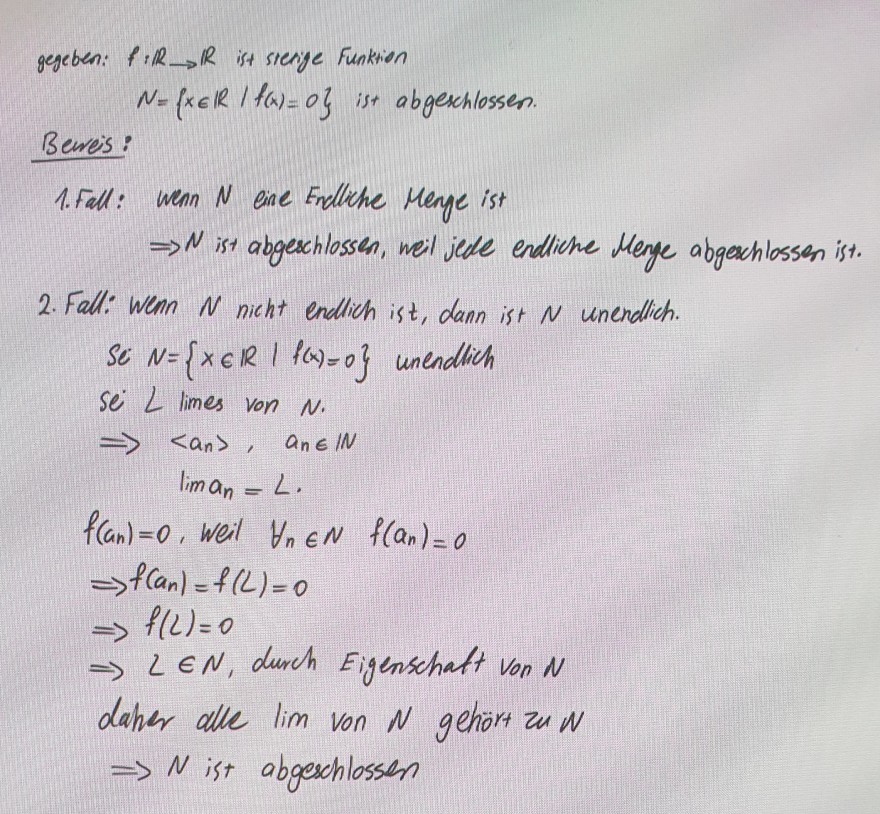 gegeben: f: ℝ → ℝ ist sterige Funktion
N = {x ∈ ℝ | f(x) = 0} ist abgeschlossen.
Beweis:
1. Fall: wenn N eine Endliche Menge ist
⇒ N ist abgeschlossen, weil jede endliche Menge abgeschlossen ist.
2. Fall: wenn N nicht endlich ist, dann ist N unendlich.
Sei N = {x ∈ ℝ | f(x) = 0} unendlich
sei L limes von N.
⇒ <an>, an ∈ ℕ
lim an = L.
f(an) = 0, weil ∀n ∈ N f(an) = 0
⇒ f(an) = f(L) = 0
⇒ f(L) = 0
⇒ L ∈ N, durch Eigenschaft von N
daher alle lim von N gehört zu N
⇒ N ist abgeschlossen